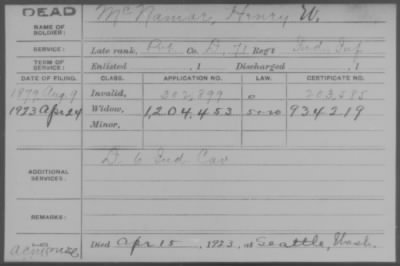 DEAD
NAME OF SOLDIER: McNamar, Henry W.
SERVICE: Late rank, Pvt. Co. D, 71 Reg't Ind. Inf
TERM OF SERVICE: Enlisted , 1 Discharged , 1
DATE OF FILING. CLASS. APPLICATION NO. LAW. CERTIFICATE NO.
1879 Aug. 9 Invalid, 302,899 203,585
1923 Apr 24 Widow, 1,204,453 934219
Minor,
ADDITIONAL SERVICES: D. 6 Ind Cav
REMARKS:
Died Apr 15, 1923, at Seattle, Wash.